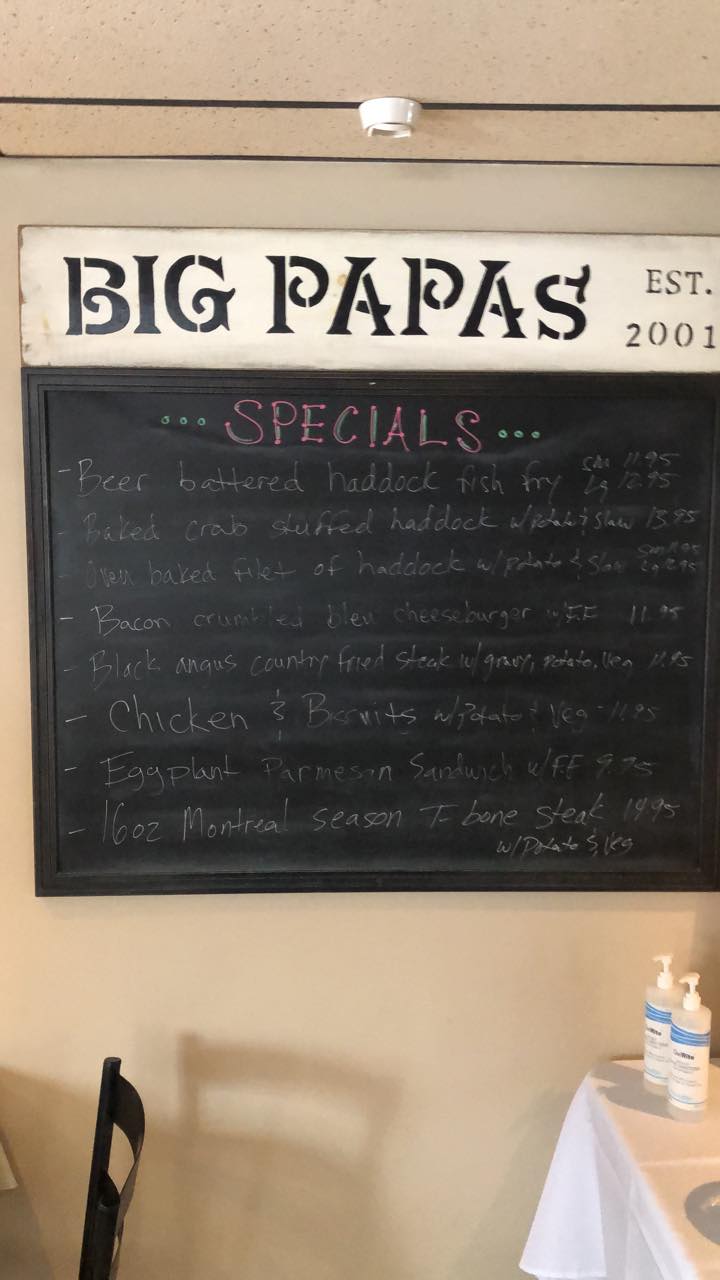 BIG PAPAS EST. 2001
... SPECIALS ...
- Beer battered haddock fish fry sm 11.95 Lg 12.95
- Baked crab stuffed haddock w/Potato & Slaw 13.95
- Oven baked filet of haddock w/potato & Slaw
- Bacon crumbled bleu cheeseburger w/FF 11.95
- Black angus country fried steak w/gravy, potato, Veg 11.95
- Chicken & Biscuits w/Potato & Veg - 11.95
- Eggplant Parmesan Sandwich w/FF 9.95
- 16oz Montreal season T-bone steak 19.95
w/Potato & Veg